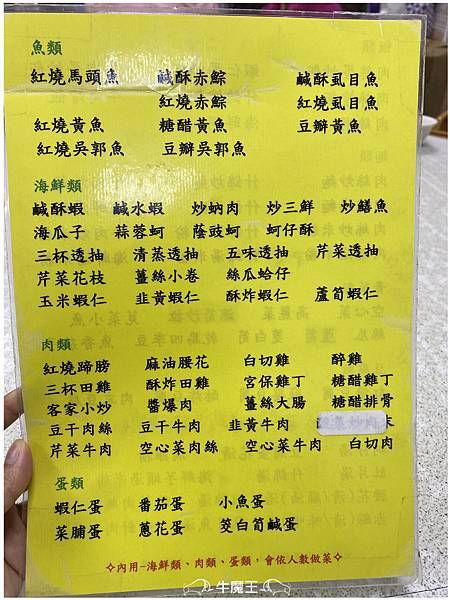 魚類
紅燒馬頭魚 鹹酥赤鯮 鹹酥虱目魚
紅燒赤鯮 紅燒虱目魚
紅燒黃魚 糖醋黃魚 豆瓣黃魚
紅燒吳郭魚 豆瓣吳郭魚
海鮮類
鹹酥蝦 鹹水蝦 炒蚋肉 炒三鮮 炒鱔魚
海瓜子 蒜蓉蚵 蔭豉蚵 蚵仔酥
三杯透抽 清蒸透抽 五味透抽 芹菜透抽
芹菜花枝 薑絲小卷 絲瓜蛤仔
玉米蝦仁 韭黃蝦仁 酥炸蝦仁 蘆筍蝦仁
肉類
紅燒蹄膀 麻油腰花 白切雞 醉雞
三杯田雞 酥炸田雞 宮保雞丁 糖醋雞丁
客家小炒 醬爆肉 薑絲大腸 糖醋排骨
豆干肉絲 豆干牛肉 韭黃牛肉
芹菜牛肉 空心菜肉絲 空心菜牛肉 白切肉
蛋類
蝦仁蛋 番茄蛋 小魚蛋
菜脯蛋 蔥花蛋 筊白筍鹹蛋
✧內用-海鮮類、肉類、蛋類，會依人數做菜✧
牛魔王